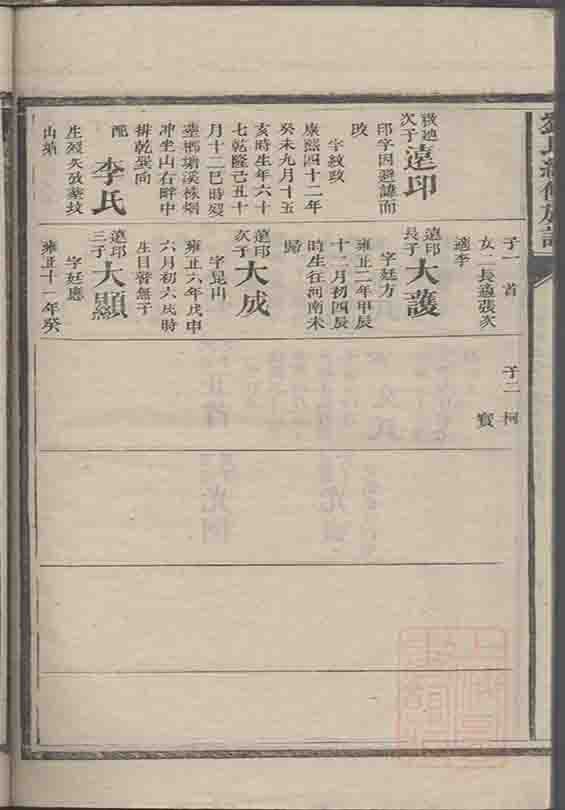 次子遠印
印字因避諱而
改
字紋政
康熙四十二年
癸未九月十五
亥時生年六十
七乾隆己丑十
月十二巳時殁
冲坐山右畔中
排乾巽向
配 李氏
生殁失攷葬坟
山
子一 首
女二長適張次
適李
遠印長子大護
字廷方
雍正二年甲辰
十二月初四辰
時生往河南未
歸
遠印次子大成
字昆山
雍正六年戊申
六月初六戌時
生目瞽無子
遠印三子大顯
字廷應
雍正十一年癸
子二 柯
實